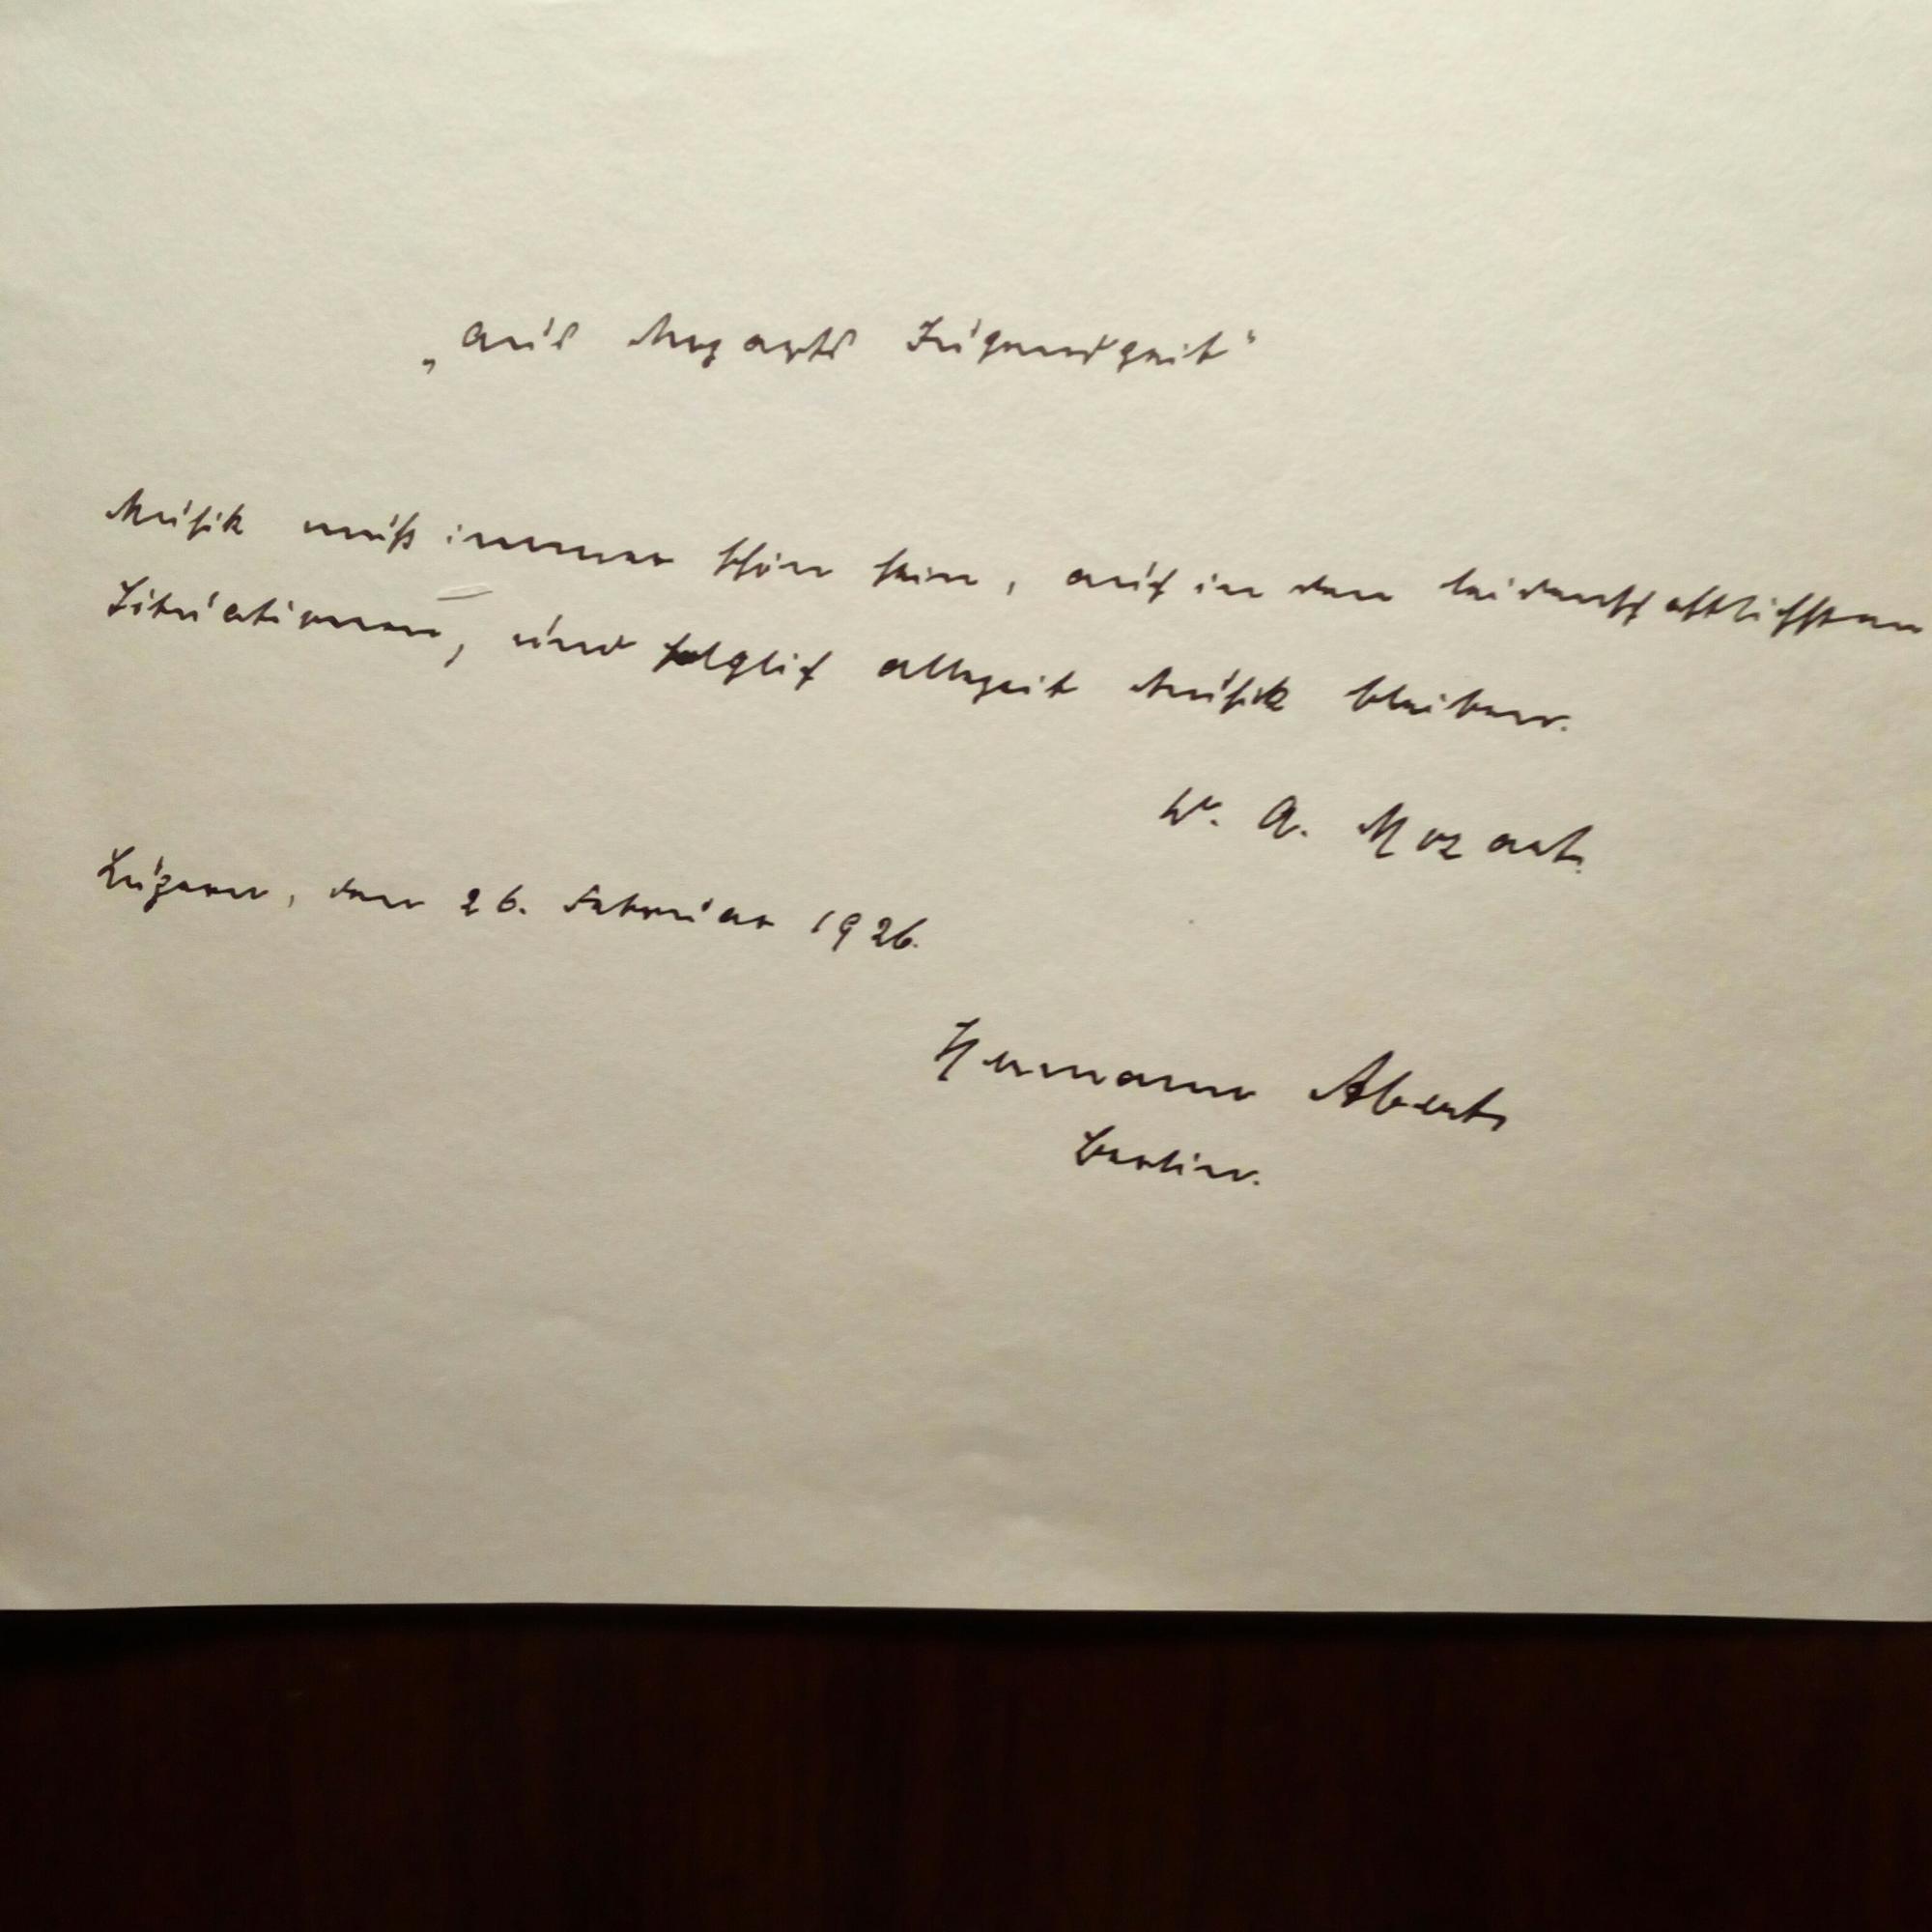 „Aus Mozarts Jugendzeit“
Musik muß immer schön sein, auch in den leidenschaftlichsten
Situationen, und folglich allezeit Musik bleiben.
W. A. Mozart.
Luzern, den 26. Februar 1926.
Hermann Abert
Berlin.